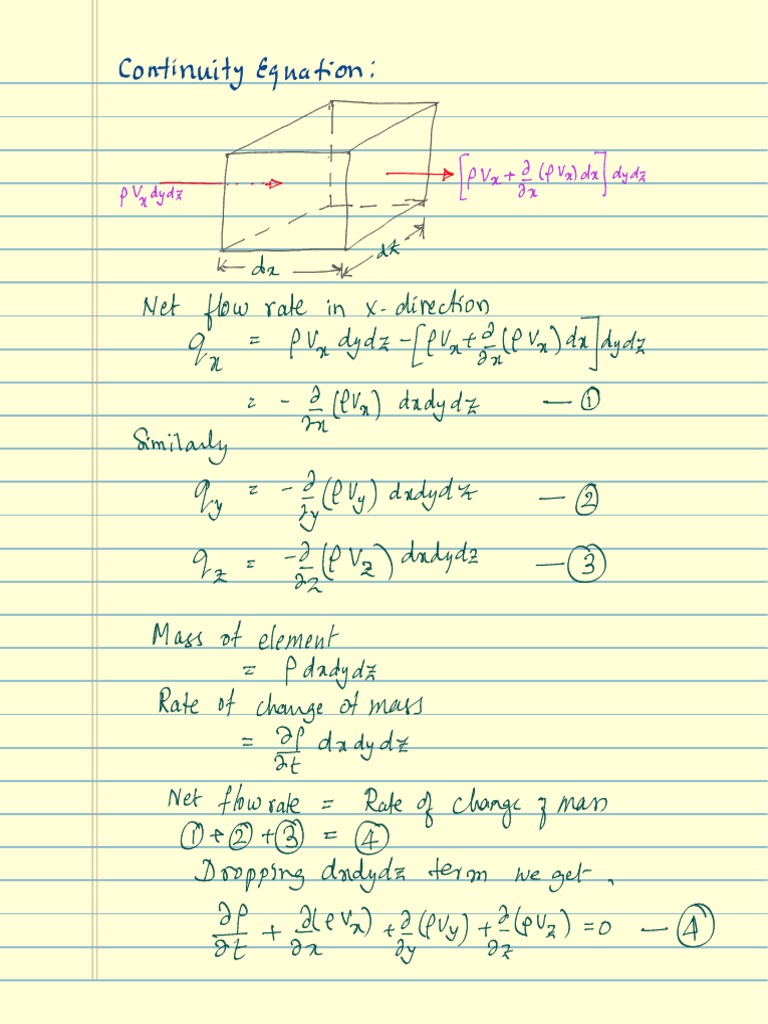 Continuity Equation:
ρVₓdydz
[ρVₓ + ∂/∂x (ρVₓ)dx] dydz
dx
dz
Net flow rate in x-direction
qₓ = ρVₓ dydz - [ρVₓ + ∂/∂x (ρVₓ) dx] dydz
= - ∂/∂x (ρVₓ) dxdydz — ①
Similarly
q_y = - ∂/∂y (ρV_y) dxdydz — ②
q_z = -∂/∂z (ρV_z) dxdydz — ③
Mass of element
= ρ dxdydz
Rate of change of mass
= ∂ρ/∂t dxdydz
Net flow rate = Rate of change of mass
① + ② + ③ = ④
Dropping dxdydz term we get,
∂ρ/∂t + ∂(ρVₓ)/∂x + ∂/∂y (ρV_y) + ∂/∂z (ρV_z) = 0 — ④